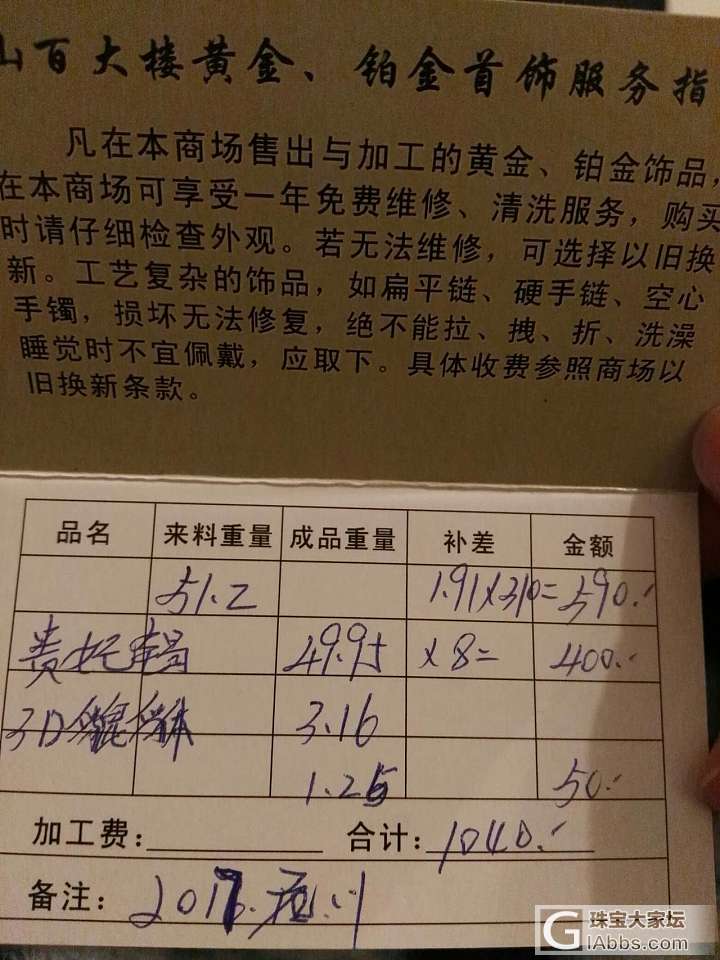 山百大楼黄金、铂金首饰服务指
凡在本商场售出与加工的黄金、铂金饰品，
在本商场可享受一年免费维修、清洗服务，购买
时请仔细检查外观。若无法维修，可选择以旧换
新。工艺复杂的饰品，如扁平链、硬手链、空心
手镯，损坏无法修复，绝不能拉、拽、折、洗澡
睡觉时不宜佩戴，应取下。具体收费参照商场以
旧换新条款。
品名 来料重量 成品重量 补差 金额
51.2 1.91×310= 590.-
贵妃 49.95 ×8= 400.-
3D 3.16
1.25 50.-
加工费： 合计：1040.-
备注：2017.
珠宝大家坛
GIAbbs.com